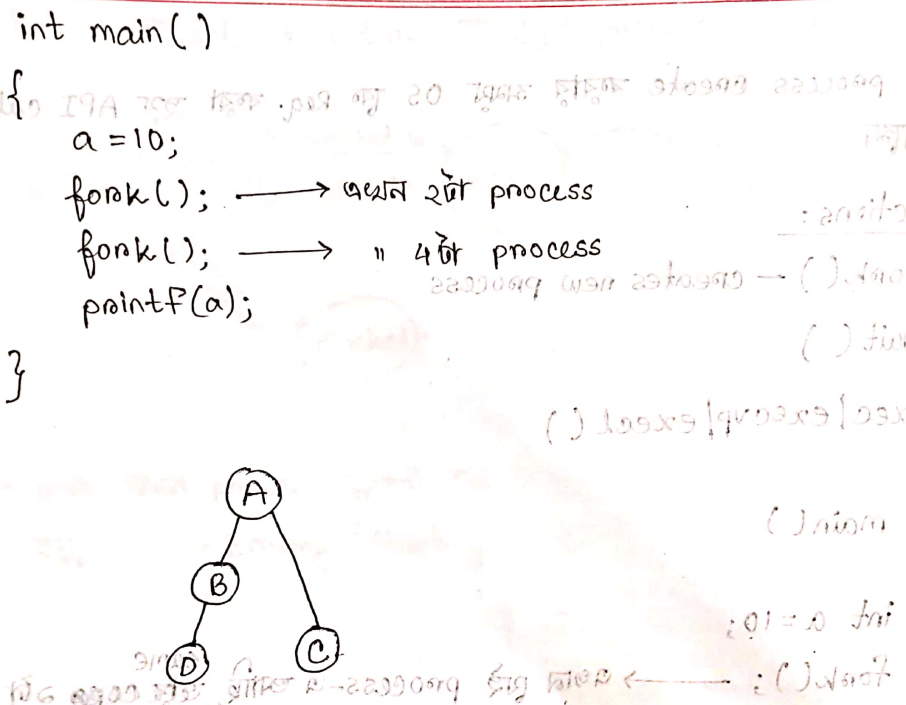 int main()
{
a = 10;
fork(); → এখন ২টা process
fork(); → " 4টা process
printf(a);
}
A
B
D
C